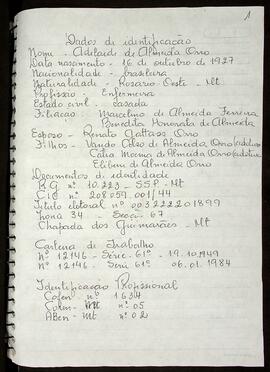 1
Dados de identificação
Nome - Adelaide de Almeida Orro
Data nascimento - 16 de outubro de 1927
Nacionalidade - brasileira
Naturalidade - Rosário Oeste - Mt
Profissão - Enfermeira
Estado civil - casada
Filiação - Marcelino de Almeida Ferreira
Benedita Honorata de Almeida
Esposo - Renato Gattass Orro
Filhos - Vando Celso de Almeida Orro
Catia Moema de Almeida Orro
de Almeida Orro
Documentos de identidade
R.G. nº 10.223 - SSP - Mt
Cic nº 208059.001/44
Titulo eleitoral nº 003222201899
Zona 34 Secção - 67
Chapada dos Guimarães - Mt
Carteira de Trabalho
Nº 12146 - Série - 61ª - 19.10.1949
Nº 12146 - Serie 61ª - 06.01.1984
Identificação Profissional
Cofen - nº 1634
Coren - Mt nº 05
ABen - Mt nº 02